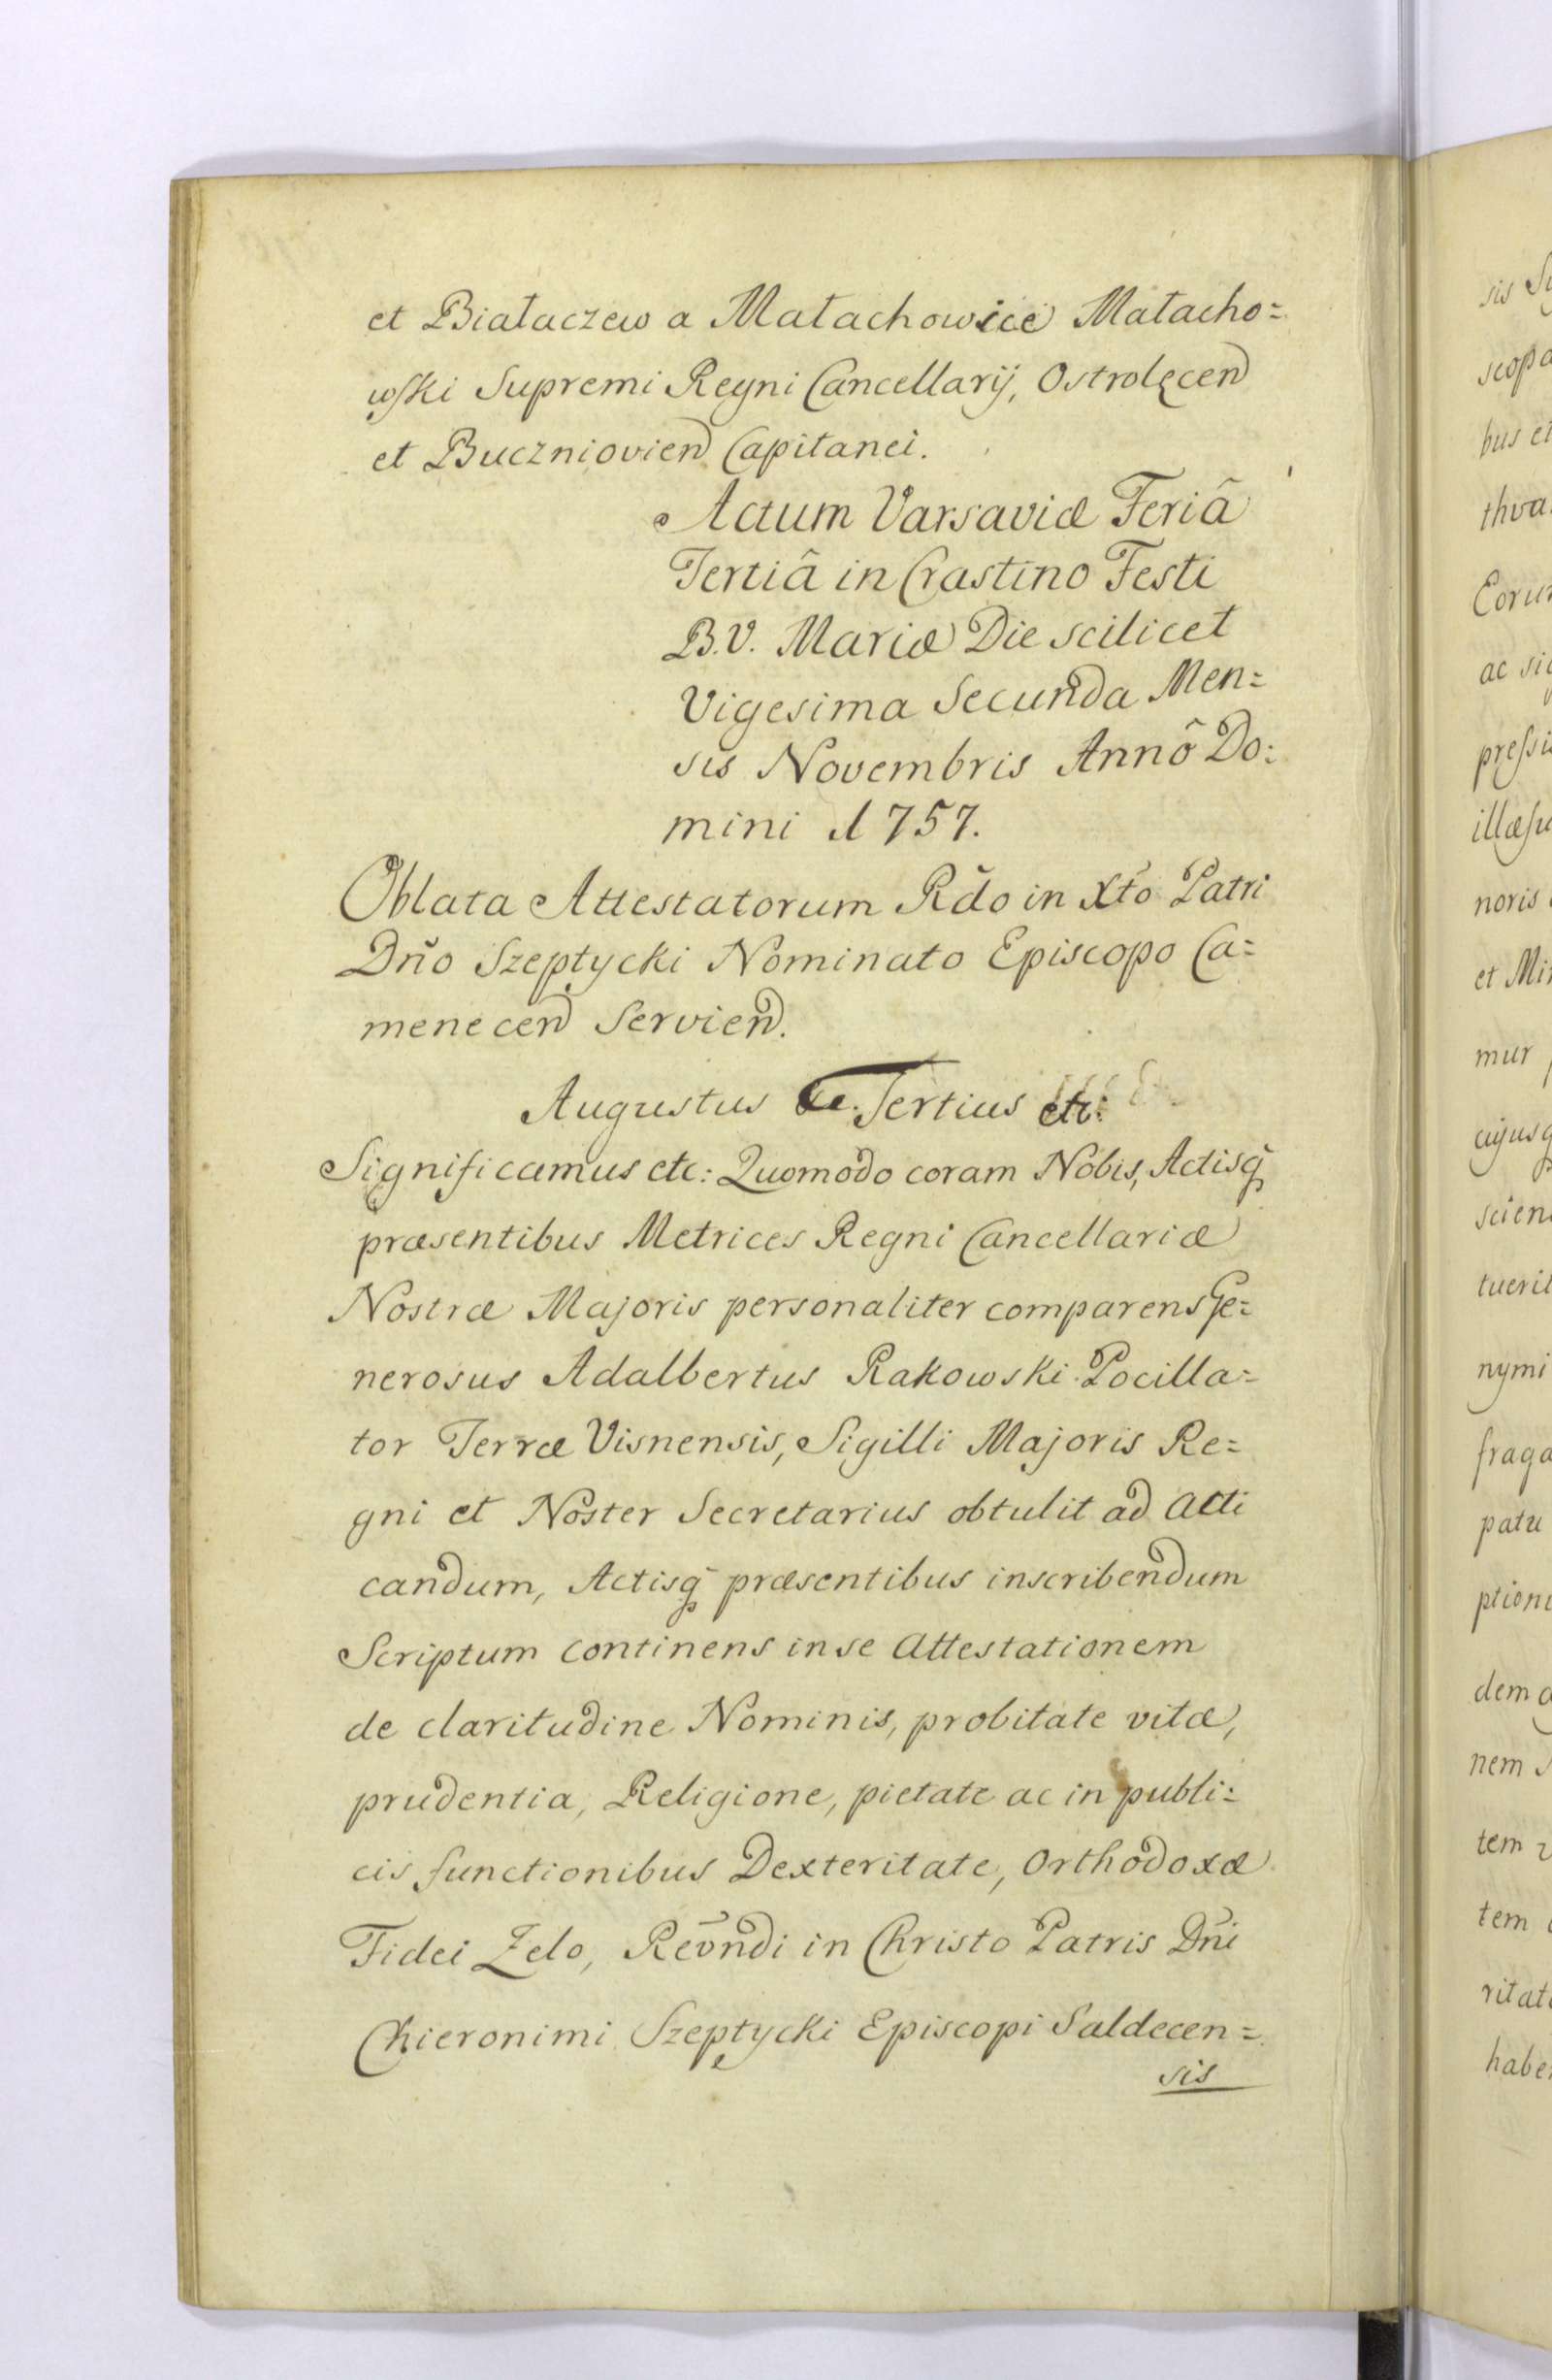 et Białaczew a Małachowice Małacho=
wski Supremi Regni Cancellarij, Ostrolęcen
et Buczniovien Capitanei.
Actum Varsaviæ Feriâ
Tertiâ in Crastino Festi
B.V. Mariæ Die scilicet
Vigesima Secunda Men=
sis Novembris Annô Do=
mini 1757.
Oblata Attestatorum Rdo in Xto Patri
Dño Szeptycki Nominato Episcopo Ca=
menecen Servien.
Augustus Tertius etc:
Significamus etc: Quomodo coram Nobis, Actisq
præsentibus Metrices Regni Cancellariæ
Nostræ Majoris personaliter comparens Ge=
nerosus Adalbertus Rakowski Pocilla=
tor Terræ Visnensis, Sigilli Majoris Re=
gni et Noster Secretarius obtulit ad acti
candum, Actisq præsentibus inscribendum
Scriptum continens in se attestationem
de claritudine Nominis, probitate vitæ,
prudentia, Religione, pietate ac in publi=
cis functionibus Dexteritate, Orthodoxæ
Fidei Zelo, Revndi in Christo Patris Dñi
Chieronimi Szeptycki Episcopi Saldecen=
sis